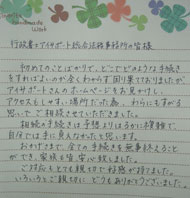 行政書士アイサポート総合法務事務所の皆様
初めてのことばかりで、どこでどのような手続き
をすればよいのか全くわからず困り果てておりましたが
アイサポートさんのホームページをお見かけし、
アクセスもしやすい場所だった為、わらにもすがる
思いでご相談させていただきました。
相続の手続きは予想よりはるかに複雑で、
自分では手に負えなかったと思います。
おかげさまで、全ての手続きを無事終えることが
でき、家族も皆、安心致しました。
ご対応もとても親切で好感が持てました。
いろいろとご親切に、どうもありがとうございました。